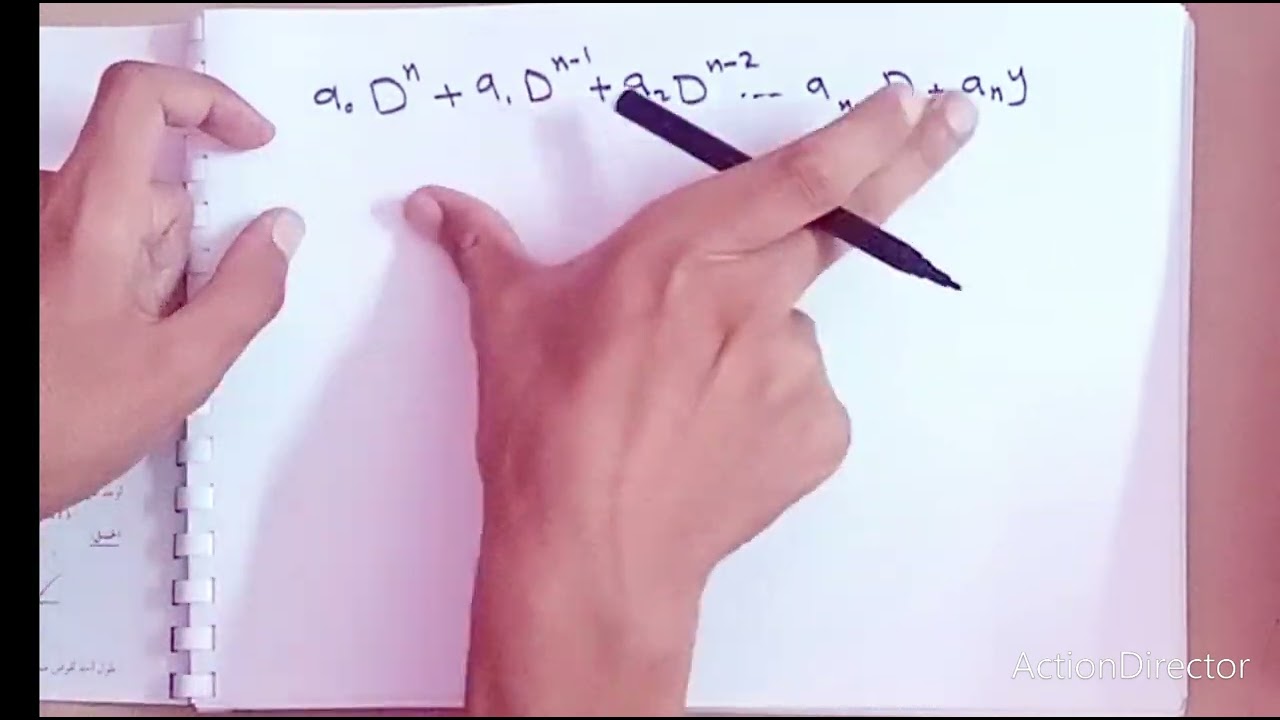 a₀ Dⁿ + a₁ Dⁿ⁻¹ + a₂ Dⁿ⁻² ... aₙ D + aₙ y
الحل
ActionDirector